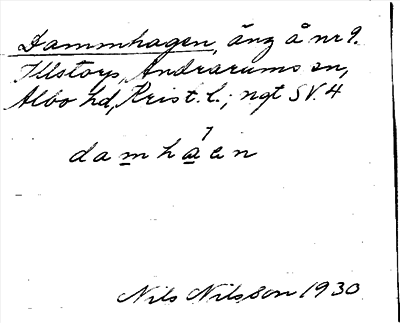 Dammhagen, äng å nr 9.
Illstorp, Andrarums sn,
Albo hd, Krist. l.; ngt SV. 4
damhaen
Nils Nilsson 1930